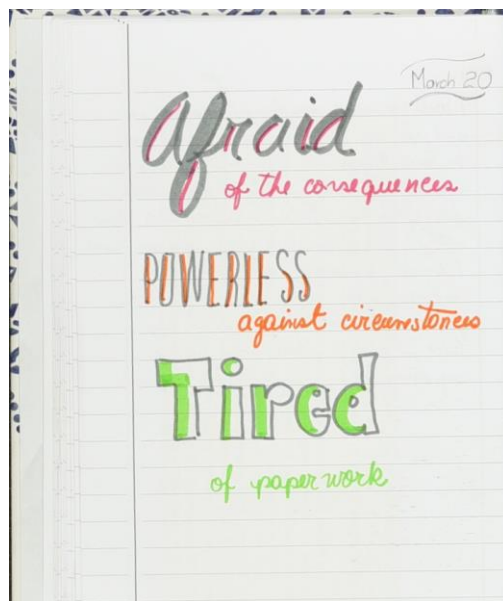 March 20
afraid
of the consequences
POWERLESS
against circumstances
Tired
of paperwork